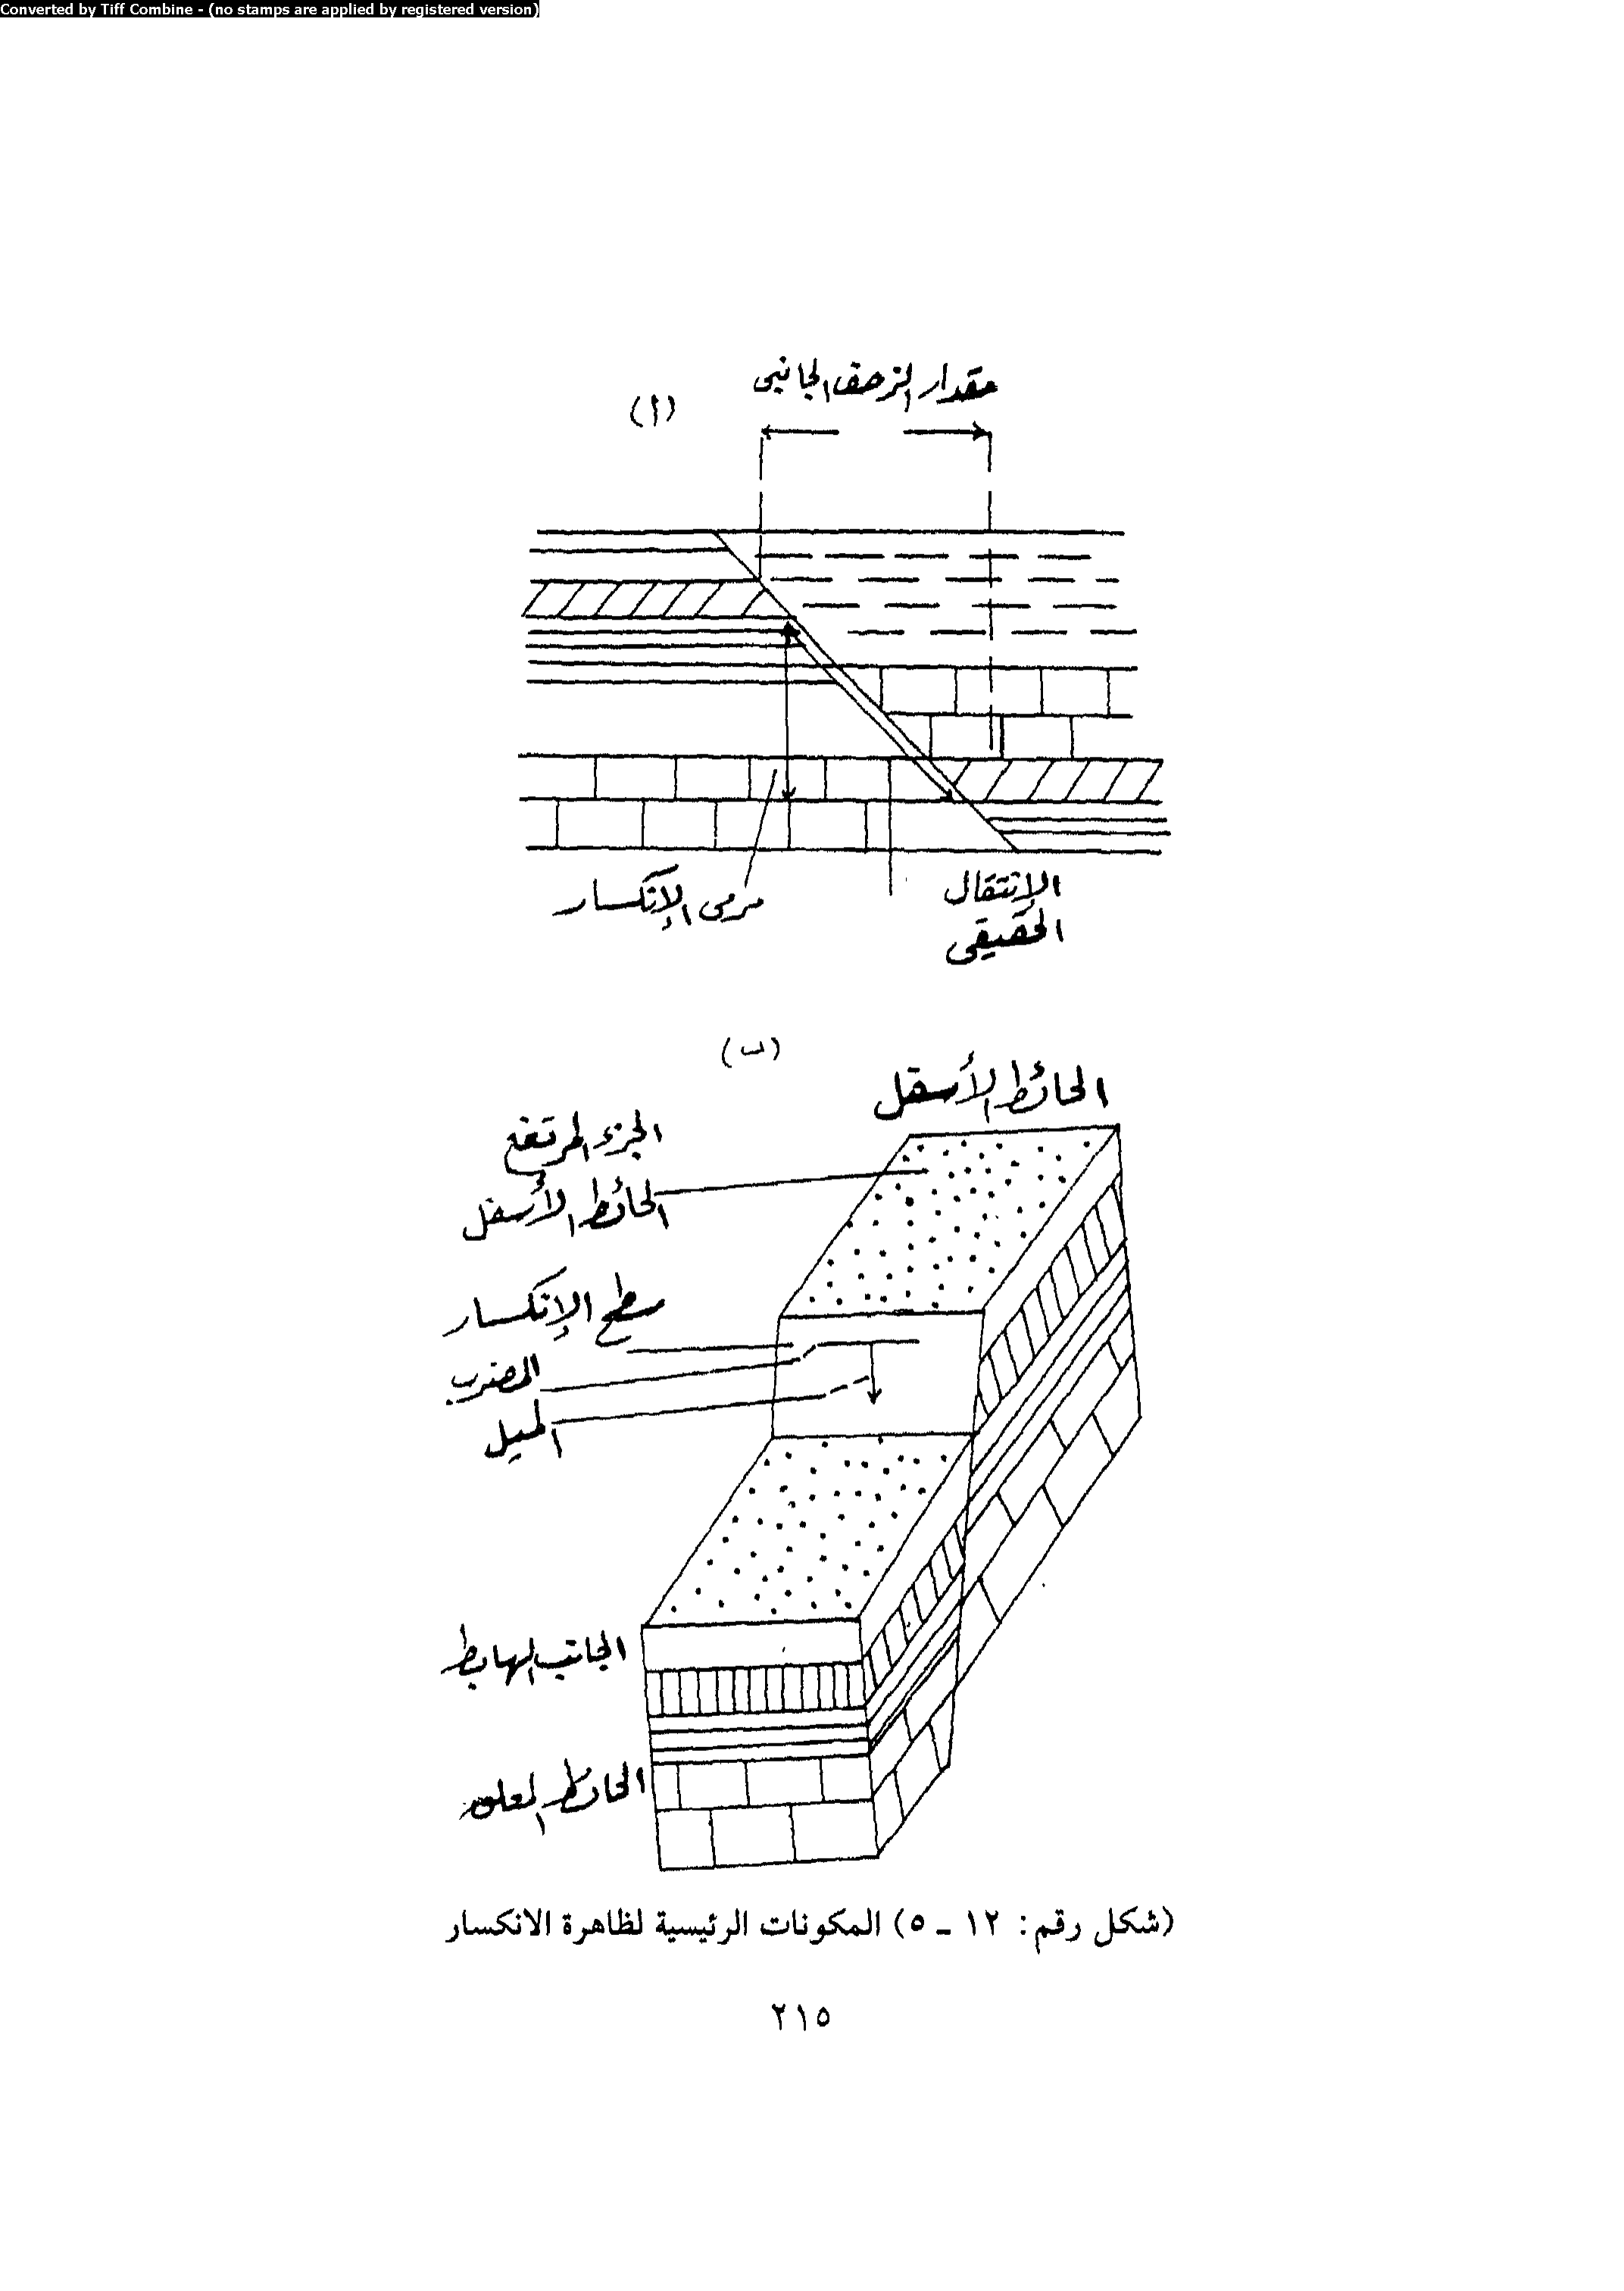 Converted by Tiff Combine - (no stamps are applied by registered version)
مقدار الزحف الجانبى
(أ)
مرمى الإنكسار
الإنتقال
الحقيقى
(ب)
الحائط الأسفل
الجزء المرتفع
الحائط الأسفل
سطح الإنكسار
المضرب
الميل
الجانب الهابط
الحائط المعلق
(شكل رقم: ١٢ ـ ٥) المكونات الرئيسية لظاهرة الانكسار
٢١٥